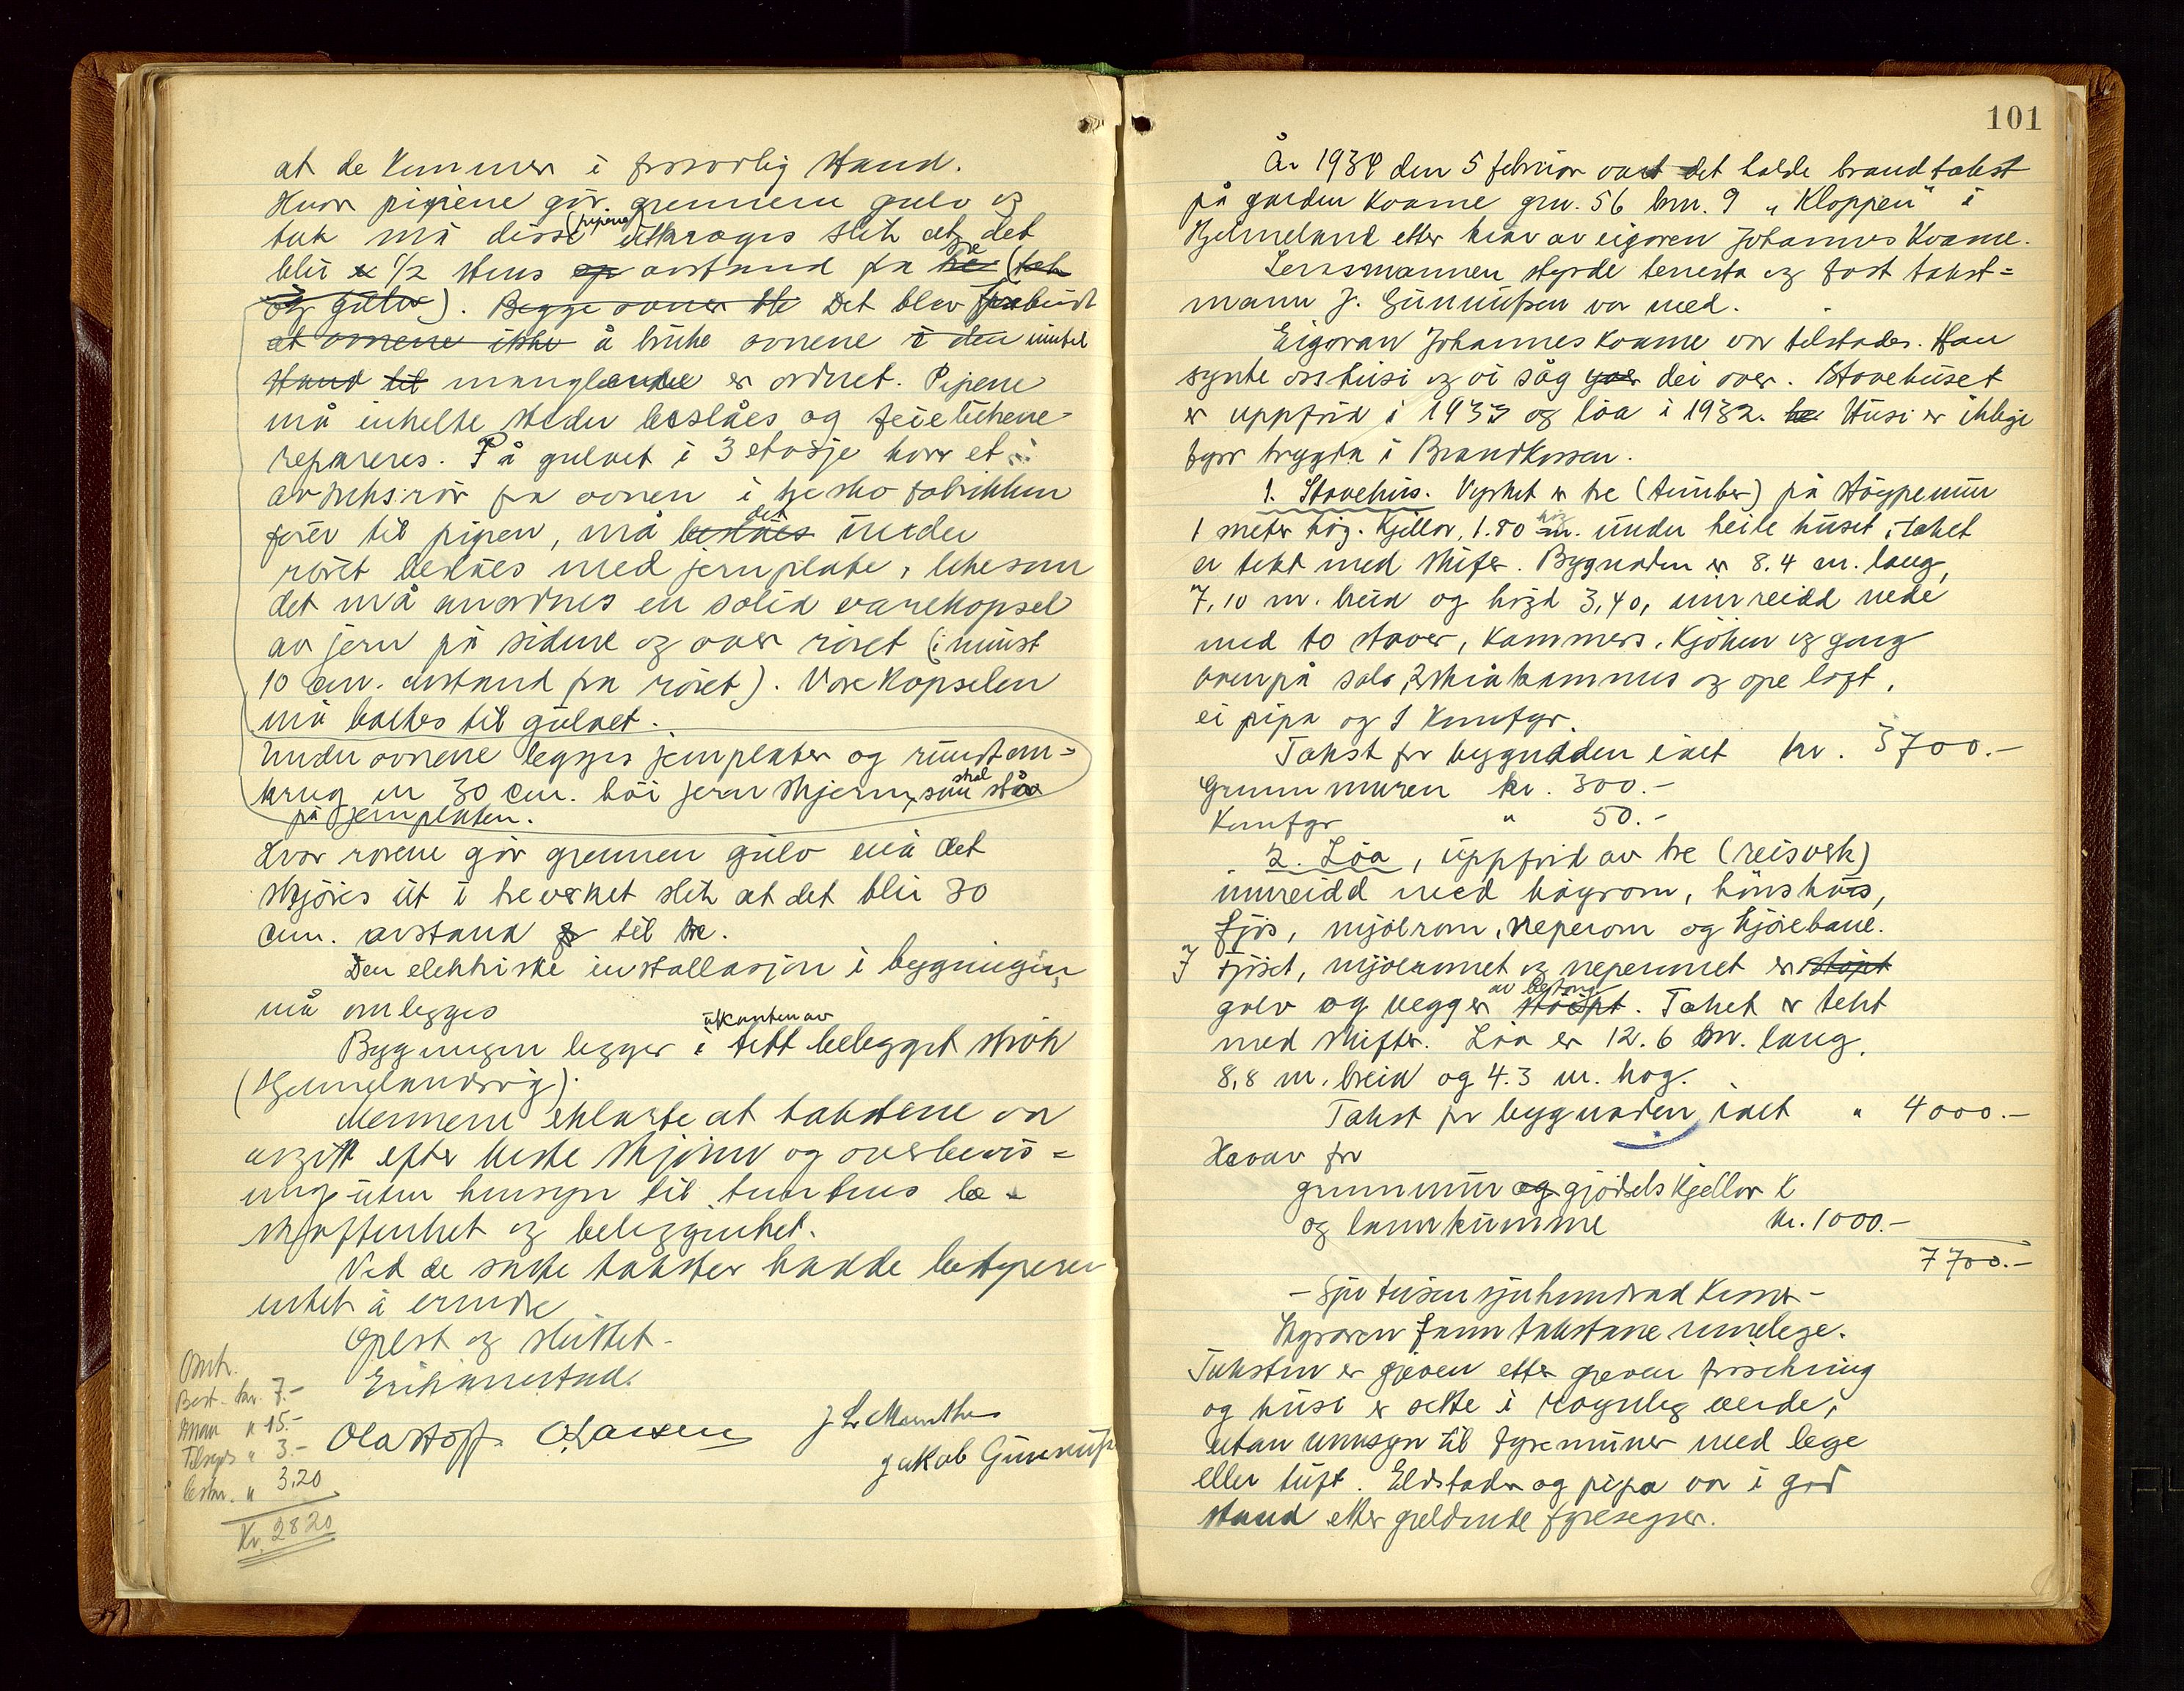 at de kommer i forsvarlig stand.
Hvor pipene går gjennem gulv og
tak må disse (pipene) utkrages slik at det
blir 1/2 stens avstand fra tre (tak
og gulv). Begge ovner Det blev forbudt
at ovnene ikke å bruke ovnene i den inntil
stand til manglende er ordnet. Pipene
må enkelte steder beslåes og feielukene
repareres. På gulvet i 3 etasje hvor et
avtrekksrör fra ovnen i tresko fabrikken
förer til pipen, må det under
röret beslåes med jernplate, likesom
det må anordnes en solid varekapsel
av jern på sidene og over röret (minst
10 cm. avstand fra röret). Varekapselen
må boltes til gulvet.
Under ovnene legges jernplater og rundtom-
kring en 30 cm. höi jern skjerm, som skal stå
på jernplaten.
Hvor rörene går gjennem gulv må det
skjæres ut i treverket slik at det blir 30
cm. avstand til tre.
Den elektriske installasjon i bygningen
må omlegges
Bygningen ligger i utkanten av tett bebygget strök
(Hjelmelandsvåg).
Mennene erklærte at takstene var
avgitt efter beste skjönn og overbevis-
ning uten hensyn til tomtens be-
skaffenhet og beliggenhet.
Ved de satte takster hadde bestyreren
intet å erindre
Oplest og sluttet.
Omk.
Best. kr. 7.-
Mann " 15.-
Tilsyns " 3.-
" 3,20
Kr. 28 20
Ola Hoff. O. Larsen
Jakob Gunnufsen
101
År 1934 den 5 februar vart det halde brandtakst
på garden Kvame gnr. 56 bnr. 9 "Kloppen" i
Hjelmeland etter krav av eigaren Johannes Kvame.
Lensmannen styrde tenesta og fast takst-
mann J. Gunnufsen var med.
Eigaran Johannes Kvame var tilstades. Han
synte oss husi og vi såg dei over. Stovehuset
er uppförd i 1933 og löa i 1932. Husi er ikkje
fyrr trygda i Brandkassen.
1. Stovehus. Verket er tre (timber) på stöypemur
1 meter hög. Kjellar, 1.80 m. hög under heile huset, taket
er tekt med skifer. Bygnaden er 8.4 m. lang,
7,10 m. breid og högd 3,40, innreidd nede
med to stover, kammers, kjöken og gang
ovenpå sals, 2 skråkammers og ope loft,
ei pipa og 1 komfyr.
Takst for bygnaden ialt kr. 3700.-
Grunnmuren kr. 300.-
Komfyr " 50.-
2. Löa, uppförd av tre (reisverk)
innreidd med höyrom, hönshus,
fjös, mjölrom, neperom og kjörebane.
I Fjöset, mjölromet og neperomet er stöpt
golv og vegger av betong stöpt. Taket er tekt
med skifer. Löa er 12.6 m. lang,
8,8 m. breid og 4.3 m. hög.
Takst for bygnaden ialt " 4000.-
Herav for
grunnmur og gjödselskjellar
og landkumme kr. 1000.-
7700.-
- Sju tusen sjuhundrad kroner -
Eigaren fann takstane rimelege.
Taksten er gjeven etter gjeven forsikring
og husi er sette i rögnleg verde,
utan umsyn til fyremuner med lege
eller tuft. Eldstader og pipa var i god
stand etter gjeldande fyresegner.